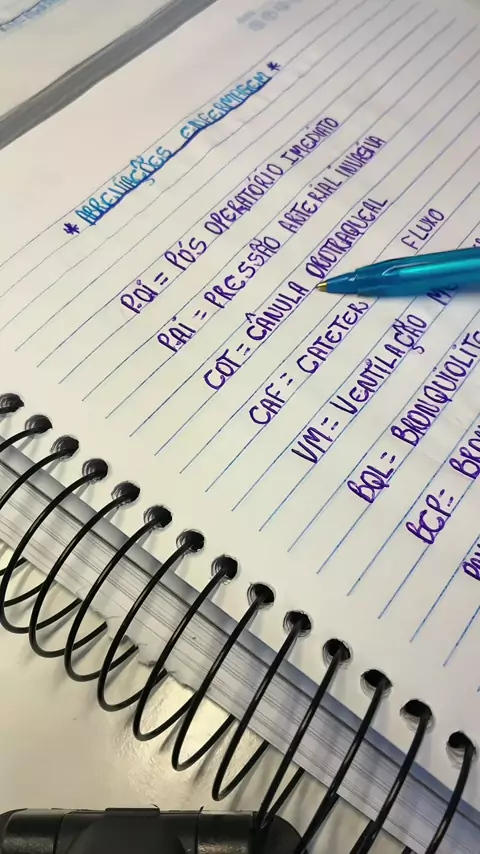 * ABREVIAÇÕES ENFERMAGEM *
POI = PÓS OPERATÓRIO IMEDIATO
PAI = PRESSÃO ARTERIAL INVASIVA
COT = CÂNULA OROTRAQUEAL
CAF = CATETER FLUXO
VM = VENTILAÇÃO
BQL = BRONQUIOLITE
BCP =